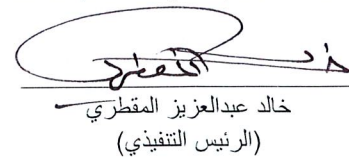 خالد عبدالعزيز المقطري
(الرئيس التنفيذي)